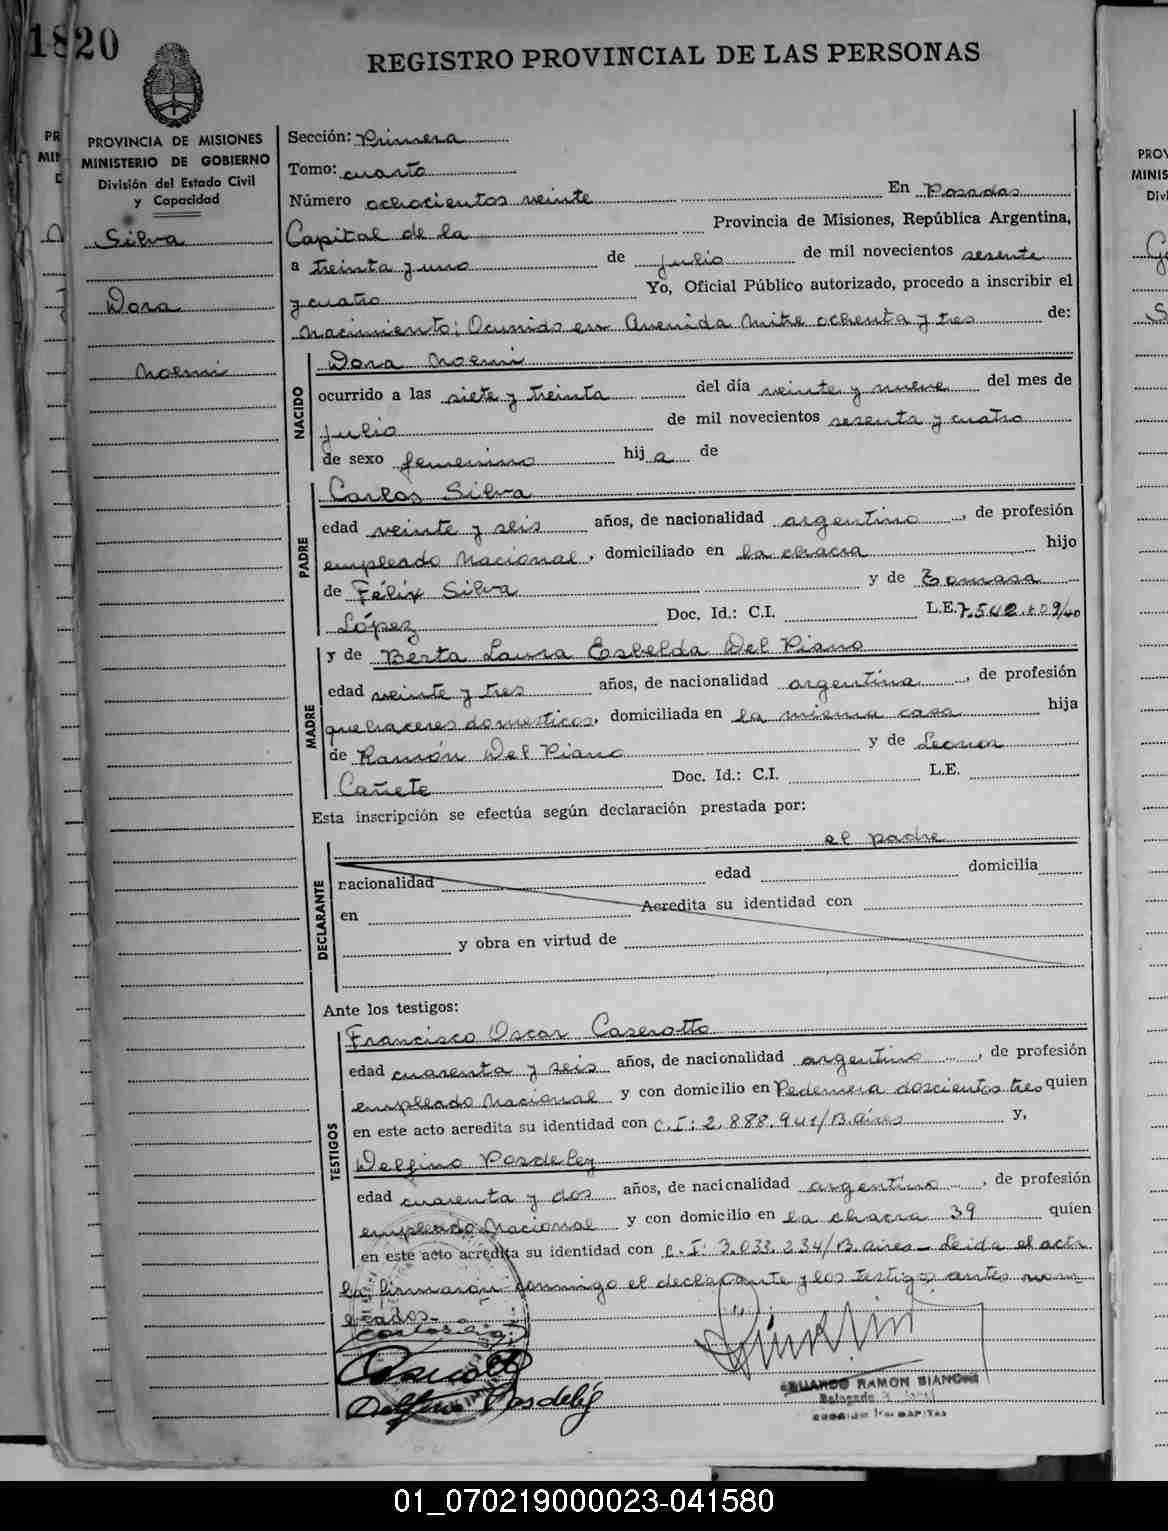 1820
REGISTRO PROVINCIAL DE LAS PERSONAS
PROVINCIA DE MISIONES
MINISTERIO DE GOBIERNO
División del Estado Civil
y Capacidad
Silva
Dora
Noemi
Sección: Primera
Tomo: cuarto
Número ochocientos veinte En Posadas
Capital de la Provincia de Misiones, República Argentina,
a treinta y uno de julio de mil novecientos sesenta
y cuatro Yo, Oficial Público autorizado, procedo a inscribir el
nacimiento; Ocurrido en Avenida Mitre ochenta y tres de:
NACIDO
Dora Noemi
ocurrido a las siete y treinta del día veinte y nueve del mes de
julio de mil novecientos sesenta y cuatro
de sexo femenino hij a de
PADRE
Carlos Silva
edad veinte y seis años, de nacionalidad argentino, de profesión
empleado Nacional, domiciliado en la chacra hijo
de Félix Silva y de Tomasa
López Doc. Id.: C.I. L.E.
MADRE
y de Berta Laura Esbelda Del Piano
edad veinte y tres años, de nacionalidad argentina, de profesión
quehaceres domesticos, domiciliada en la misma casa hija
de Ramón Del Piano y de Leonor
Cañete Doc. Id.: C.I. L.E.
Esta inscripción se efectúa según declaración prestada por:
el padre
DECLARANTE
nacionalidad edad domicilia
en Acredita su identidad con
y obra en virtud de
Ante los testigos:
TESTIGOS
Francisco Oscar Caserotto
edad cuarenta y seis años, de nacionalidad argentino, de profesión
empleado Nacional y con domicilio en Pedernera doscientos tres quien
en este acto acredita su identidad con C.I: 2.888.941/B.aires y,
Delfino Posdeley
edad cuarenta y dos años, de nacionalidad argentino, de profesión
empleado Nacional y con domicilio en la chacra 39 quien
en este acto acredita su identidad con C.I: 3.033.234/B.aires - Leida el acta
la firmaron conmigo el declarante y los testigos antes nom-
brados.-
EDUARDO RAMON BIANCHI
01_070219000023-041580